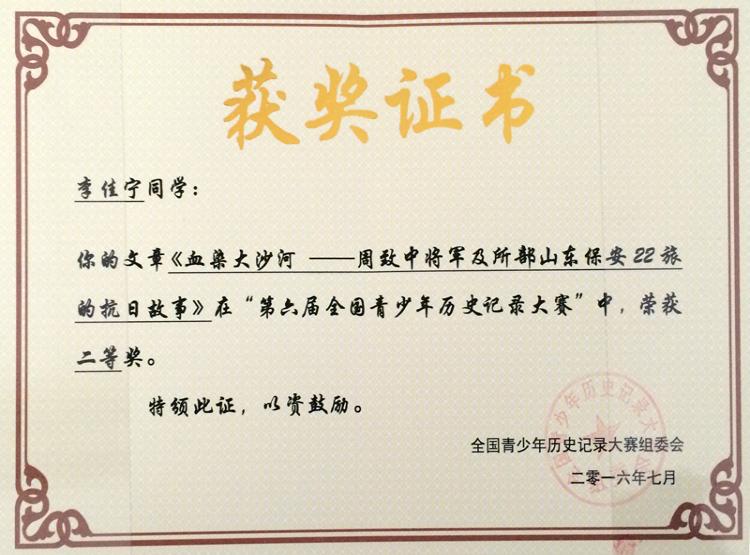 获奖证书
李佳宁同学：
你的文章《血染大沙河 ——周致中将军及所部山东保安22旅
的抗日故事》在“第六届全国青少年历史记录大赛”中，荣获
二等奖。
特颁此证，以资鼓励。
全国青少年历史记录大赛组委会
二零一六年七月